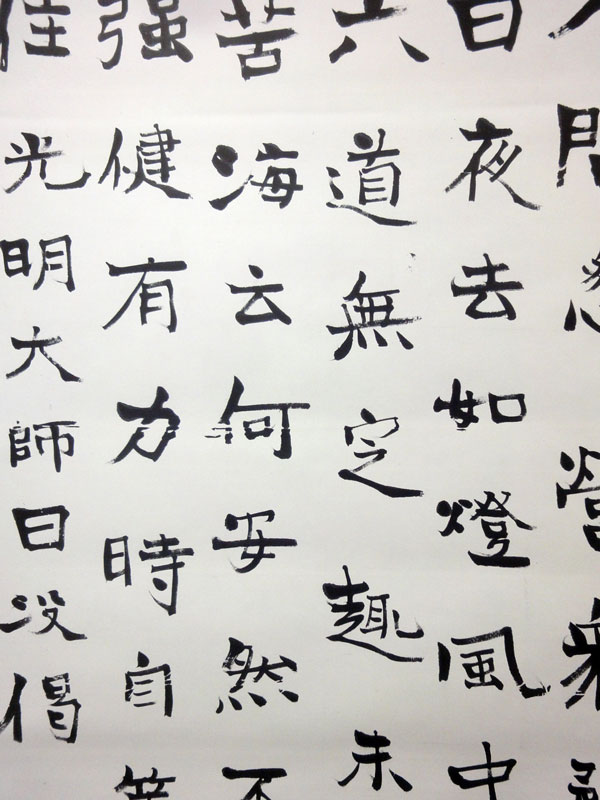 間營
日夜去如燈風中
六道無定趣未
苦海云何安然不
强健有力時自策
住光明大師日没偈